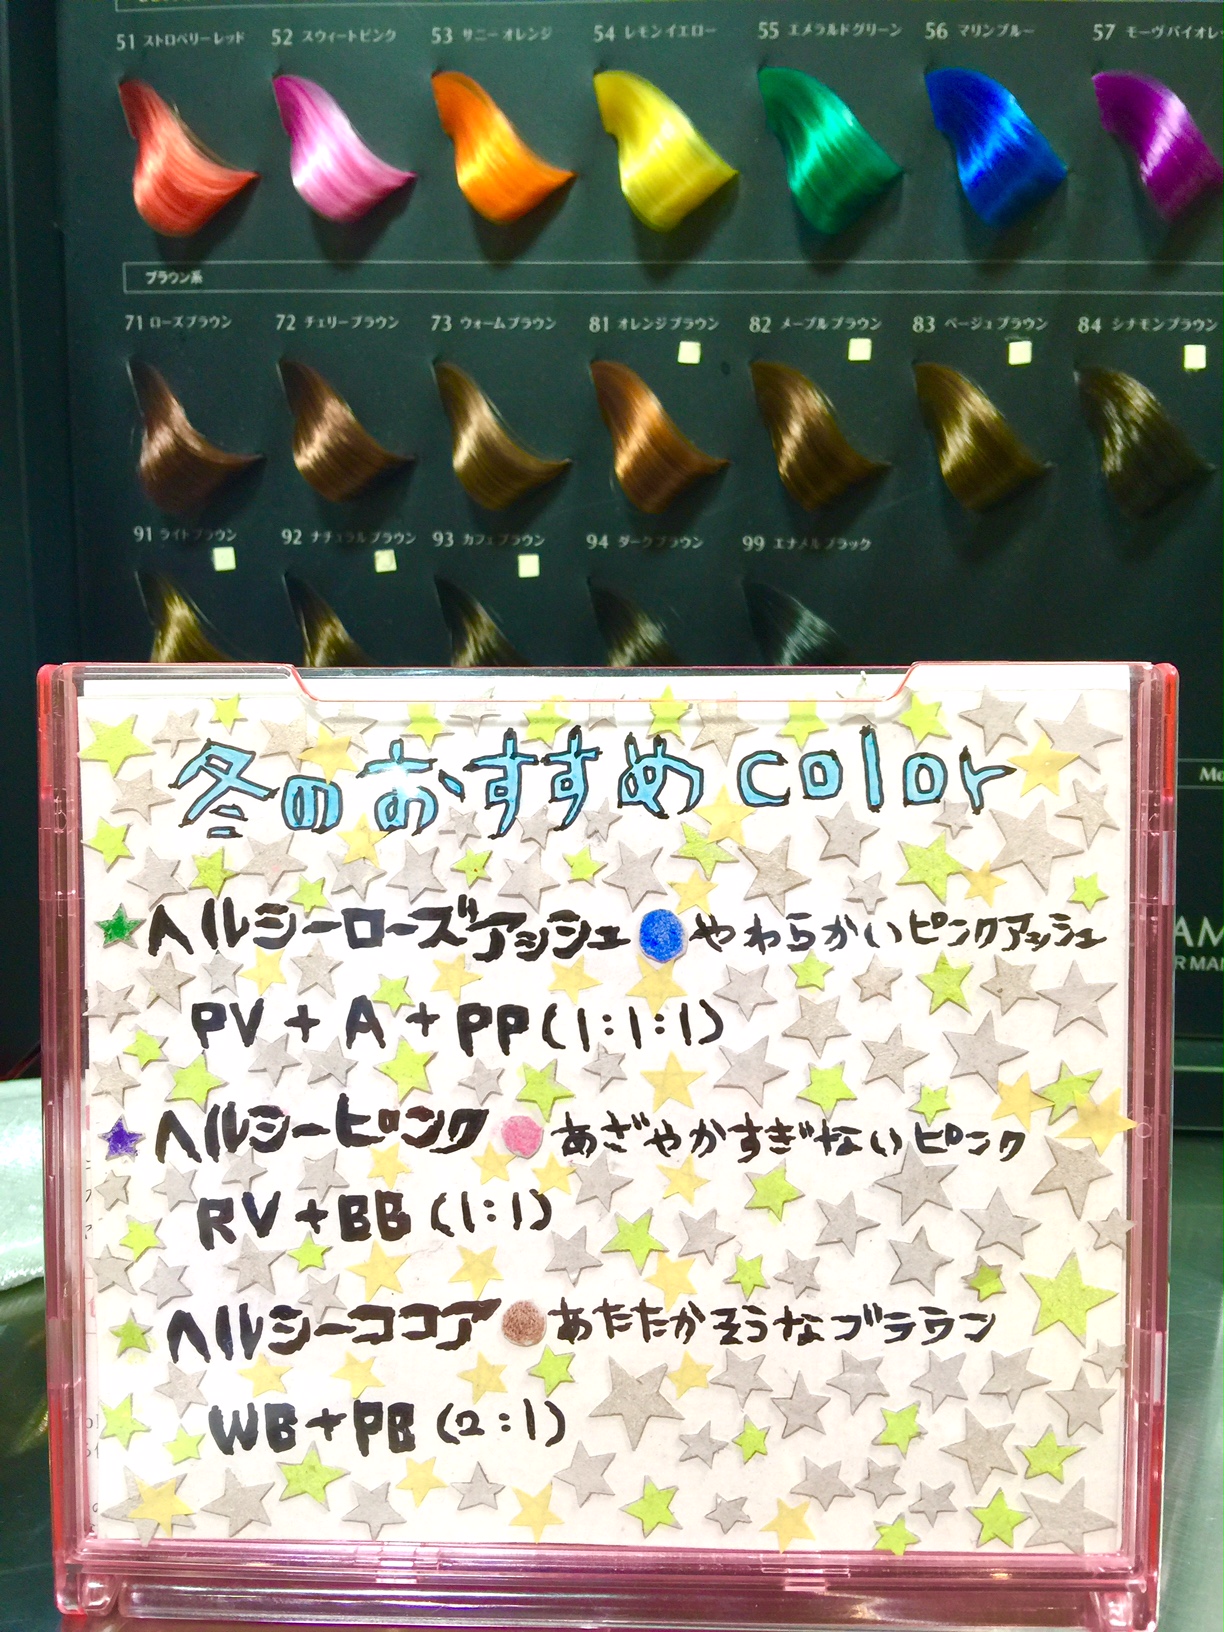 51 ストロベリーレッド 52 スウィートピンク 53 サニーオレンジ 54 レモンイエロー 55 エメラルドグリーン 56 マリンブルー 57 モーヴバイオレ
ブラウン系
71 ローズブラウン 72 チェリーブラウン 73 ウォームブラウン 81 オレンジブラウン 82 メープルブラウン 83 ベージュブラウン 84 シナモンブラウン
91 ライトブラウン 92 ナチュラルブラウン 93 カフェブラウン 94 ダークブラウン 99 エナメルブラック
冬のおすすめ color
ヘルシーローズアッシュ やわらかいピンクアッシュ
PV + A + PP (1:1:1)
ヘルシーピンク あざやかすぎないピンク
RV + BB (1:1)
ヘルシーココア あたたかそうなブラウン
WB + PB (2:1)